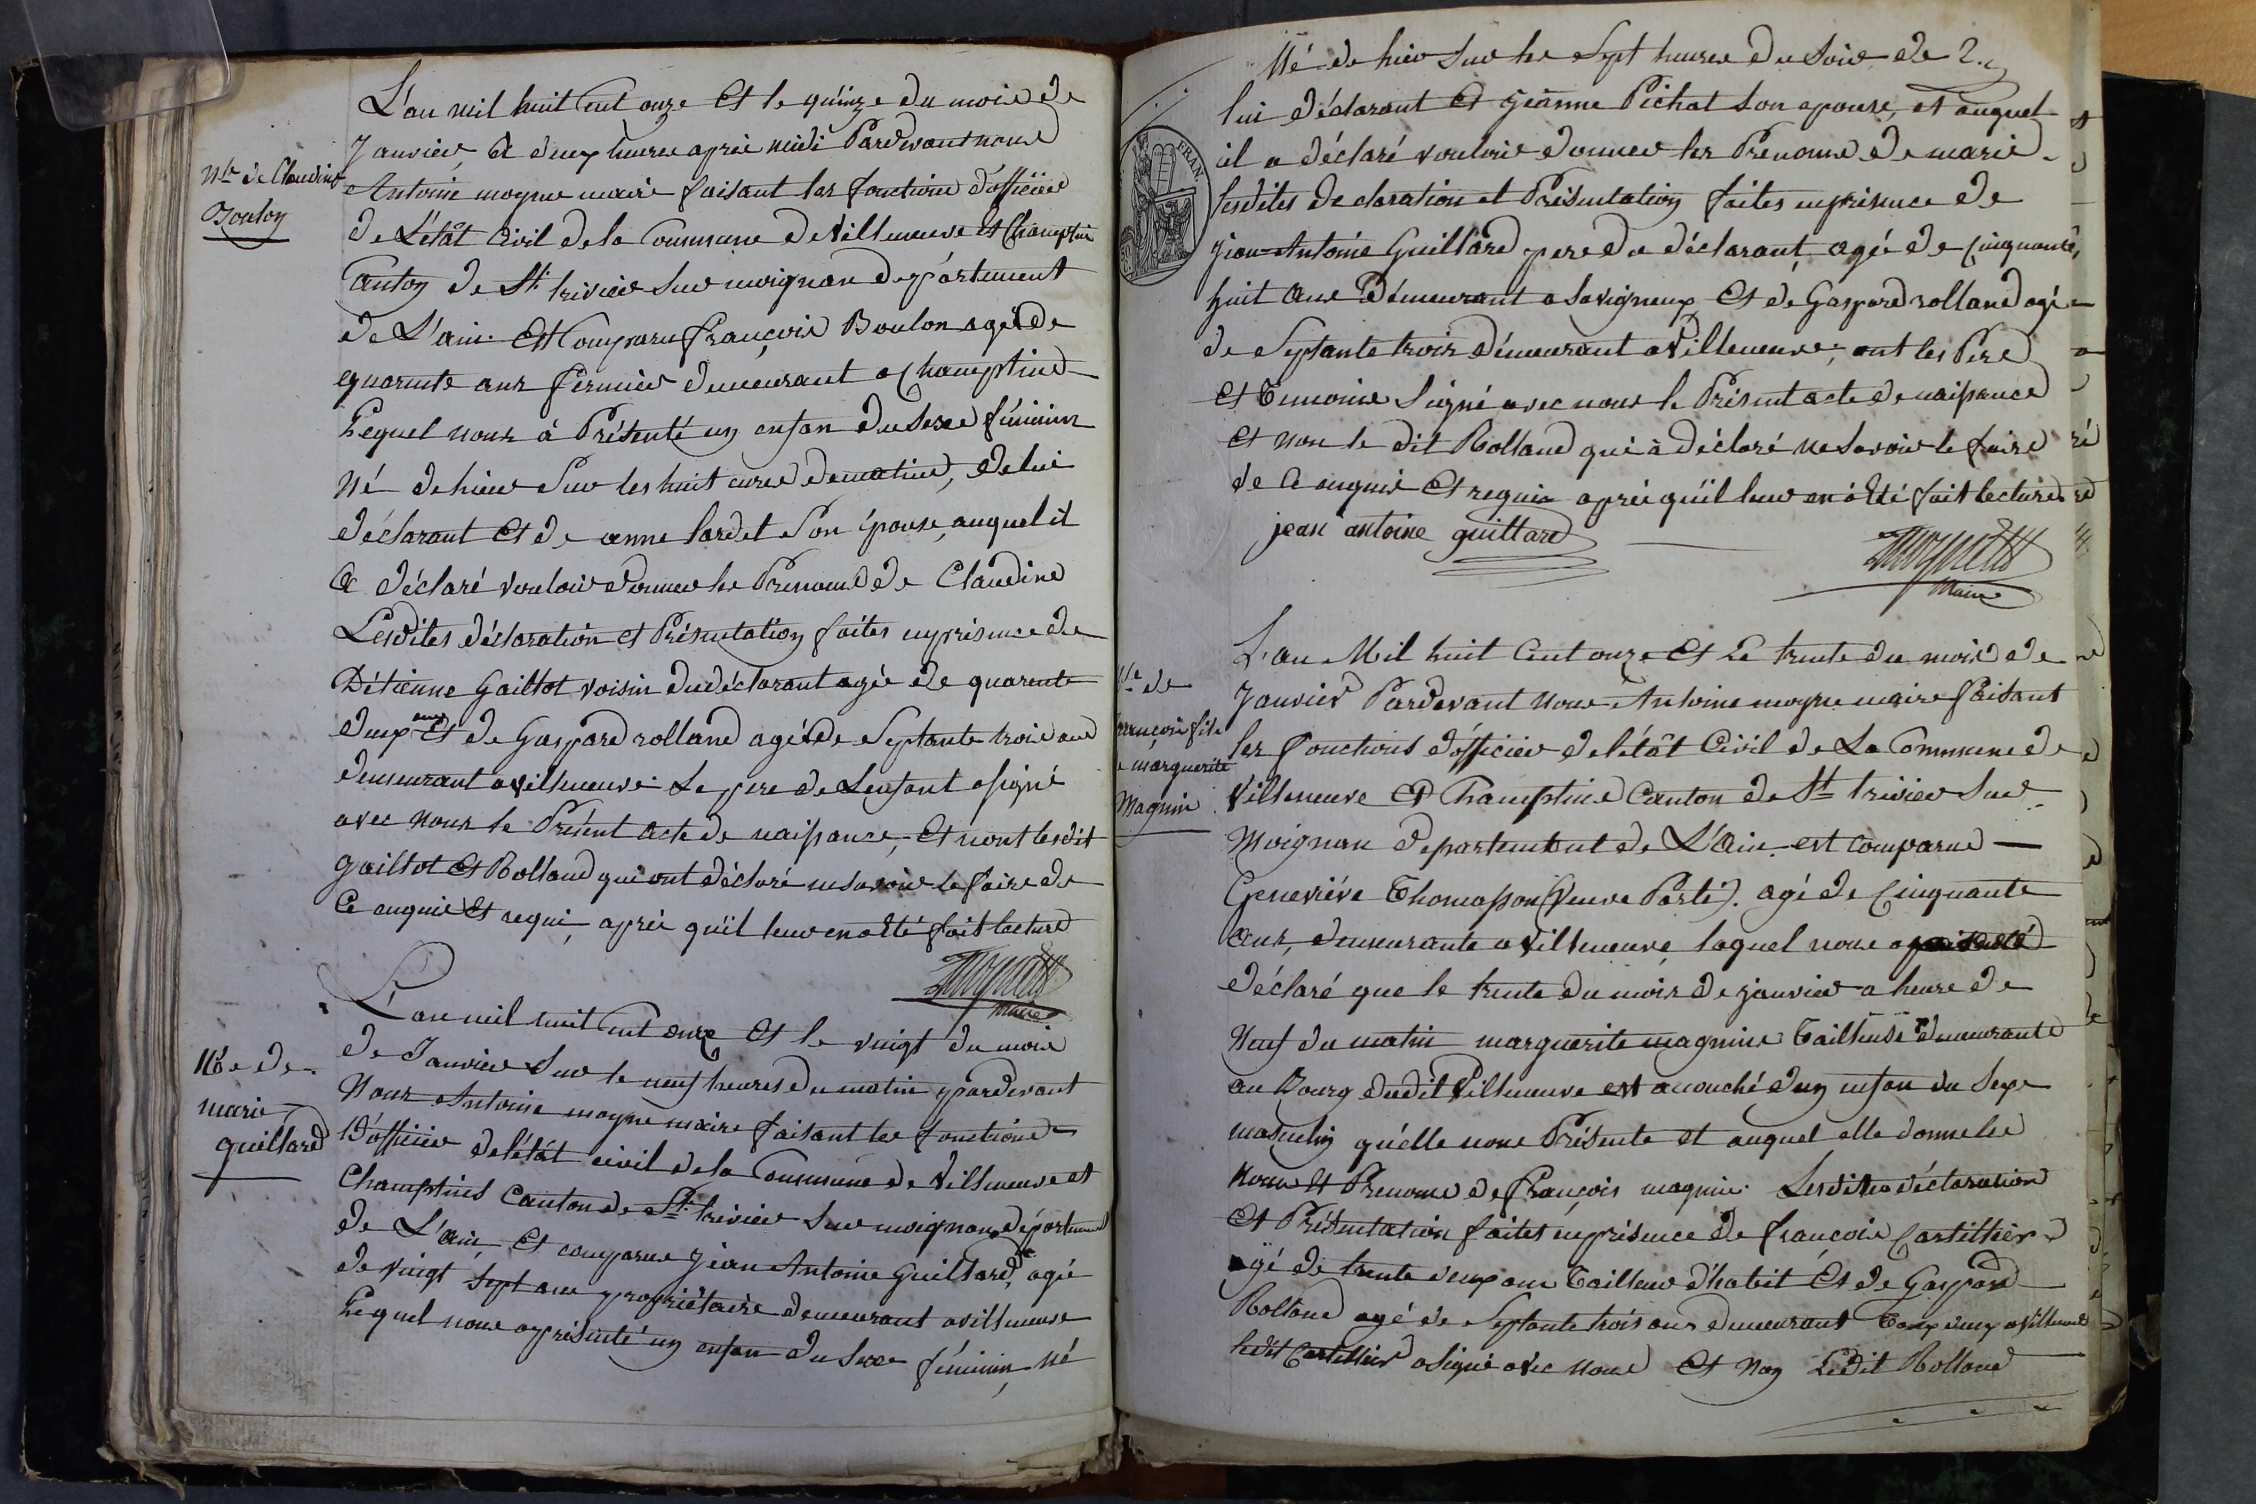 Nce de Claudine
Boulon
L'an mil huit cent onze et le quinze du mois de
Janvier, a deux heures après midi Pardevant nous
Antoine moyne maire faisant les fonctions d'officier
de L'étât Civil de la Commune de Villeneuve et Champtein
Canton de St. trivier sur moignan département
de L'ain Est Comparu françois Boulon agé de
quarante ans fermier demeurant a Champtins
Lequel nous à Présenté un enfan du sexe féminin
Né de hier sur les huit eures de matins, de lui
déclarant et de anne lardet son épouse, auquel il
a déclaré vouloir donner les Prenoms de Claudine
Lesdites déclaration et Présentation faites en présence de
Détienne Gailtot voisin dudéclarant agée de quarente
deux ans et de Gaspard rolland agé de Septante trois ans
demeurant a villeneuve. Le pere de Lenfant a signé
avec nous le Présent acte de naissance, et nont lesdit
gailtot et Rolland qui ont déclaré ne savoir le faire de
Ce enquis et requi, après qu'il leur en a été fait lecture
maire
Nce de
marie
guillard
L'an mil huit cent onze et le vingt du mois
de Janvier Sur le neuf heures du matin pardevant
Nous Antoine moyne maire faisant les fonctions
D'officier de l'étât civil de la Commune de Villeneuve et
Champtins Canton de St. trivier sur moignan, département
de L'ain, et comparu jean Antoine Guillard, agé
de vingt sept ans propriétaire demeurant a villeneuve
Lequel nous a présenté un enfan du sexe féminin, né
Né de hier sur les Sept heures du Soir de
lui déclarant et jeanne Pichat son epouse, et auquel
il a déclaré vouloir donner les Prenoms de marie
FRAN.
lesdites declaration et Présentation faites en présence de
jean Antoine Guillard pere du déclarant, agé de Cinquante
huit ans Démeurant a Savigneux et de Gaspard rolland agé
de Septante trois démeurant a Villeneuve; ont les Pere
et temoins Signé avec nous le Présent acte de naissance
et non le dit Rolland qui à déclaré ne savoir le faire
de ce enquis et requis après qu'il leur en à été fait lecture
jean antoine guillard
maire
Nce de
françois fils
de marguerite
Magnin
L'an Mil huit Cent onze et Le trente du mois de
Janvier Pardevant Nous Antoine moyne maire faisant
les fonctions d'officier de l'étât Civil de La Commune de
Villeneuve et Champtins Canton de St trivier sur
Moignan departement de L'Ain est comparue
Geneviéve Thomasson (Veuve Porte). agé de Cinquante
ans, demeurante a Villeneuve, laquel nous a
déclaré que le trente du mois de janvier a heure de
Neuf du matin marguerite magnine tailleuse demeurante
au Bourg dudit Villeneuve est acouché dun enfan du Sexe
masculin qu'elle nous Présente et auquel elle donne les
Noms et Prenoms de françois magnin. Lesdites déclaration
et Présentation faites en présence de françois Cartillier
agé de trente deux ans tailleur d'habit et de Gaspard
Rolland agé de Septante trois ans demeurant tous deux a Villeneuve
ledit Cartillier a signé avec nous et Non Ledit Rolland